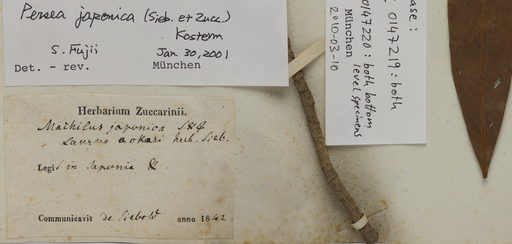 Persea japonica (Sieb. et Zucc.)
Kosterm
S. Fujii Jan. 30, 2001
Det. - rev. München
ase :
: 0147219 : both
0147220 : both bottom
level specimens
München
2010-03-10
Herbarium Zuccarinii.
Machilus japonica S&Z
Laurus aokari herb. Sieb.
Legit in Japonia
Communicavit de Siebold anno 1842